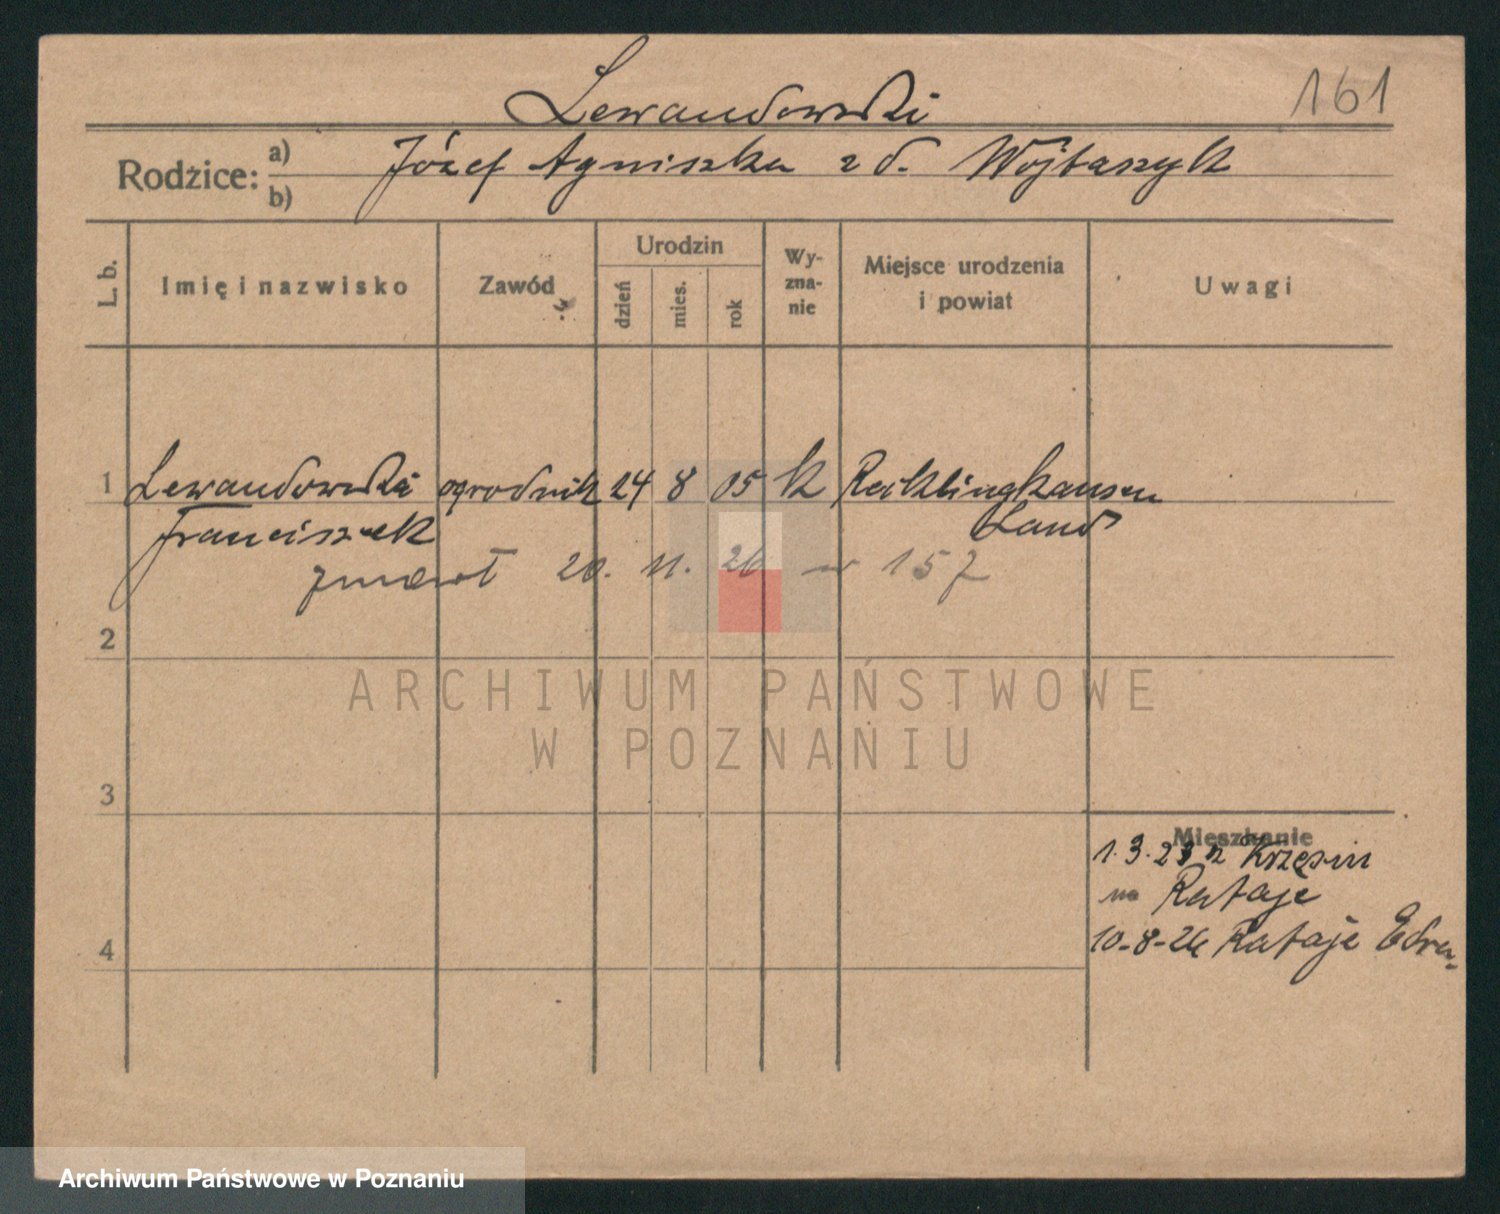 Lewandowski
161
Rodzice: a) Józef Agniszka z d. Wojtaszyk
b)
L. b.
Imię i nazwisko
Zawód
Urodzin
dzień
mies.
rok
Wy-
zna-
nie
Miejsce urodzenia
i powiat
Uwagi
1 Lewandowski ogrodnik 24 8 05 k Recklinghausen
Franciszek Land
zmarł 20. 11. 26 w 157
2
ARCHIWUM PAŃSTWOWE
W POZNANIU
3
Mieszkanie
1.3.23 z Krzesin
na Rataje
4
10-8-26 Rataje
Archiwum Państwowe w Poznaniu